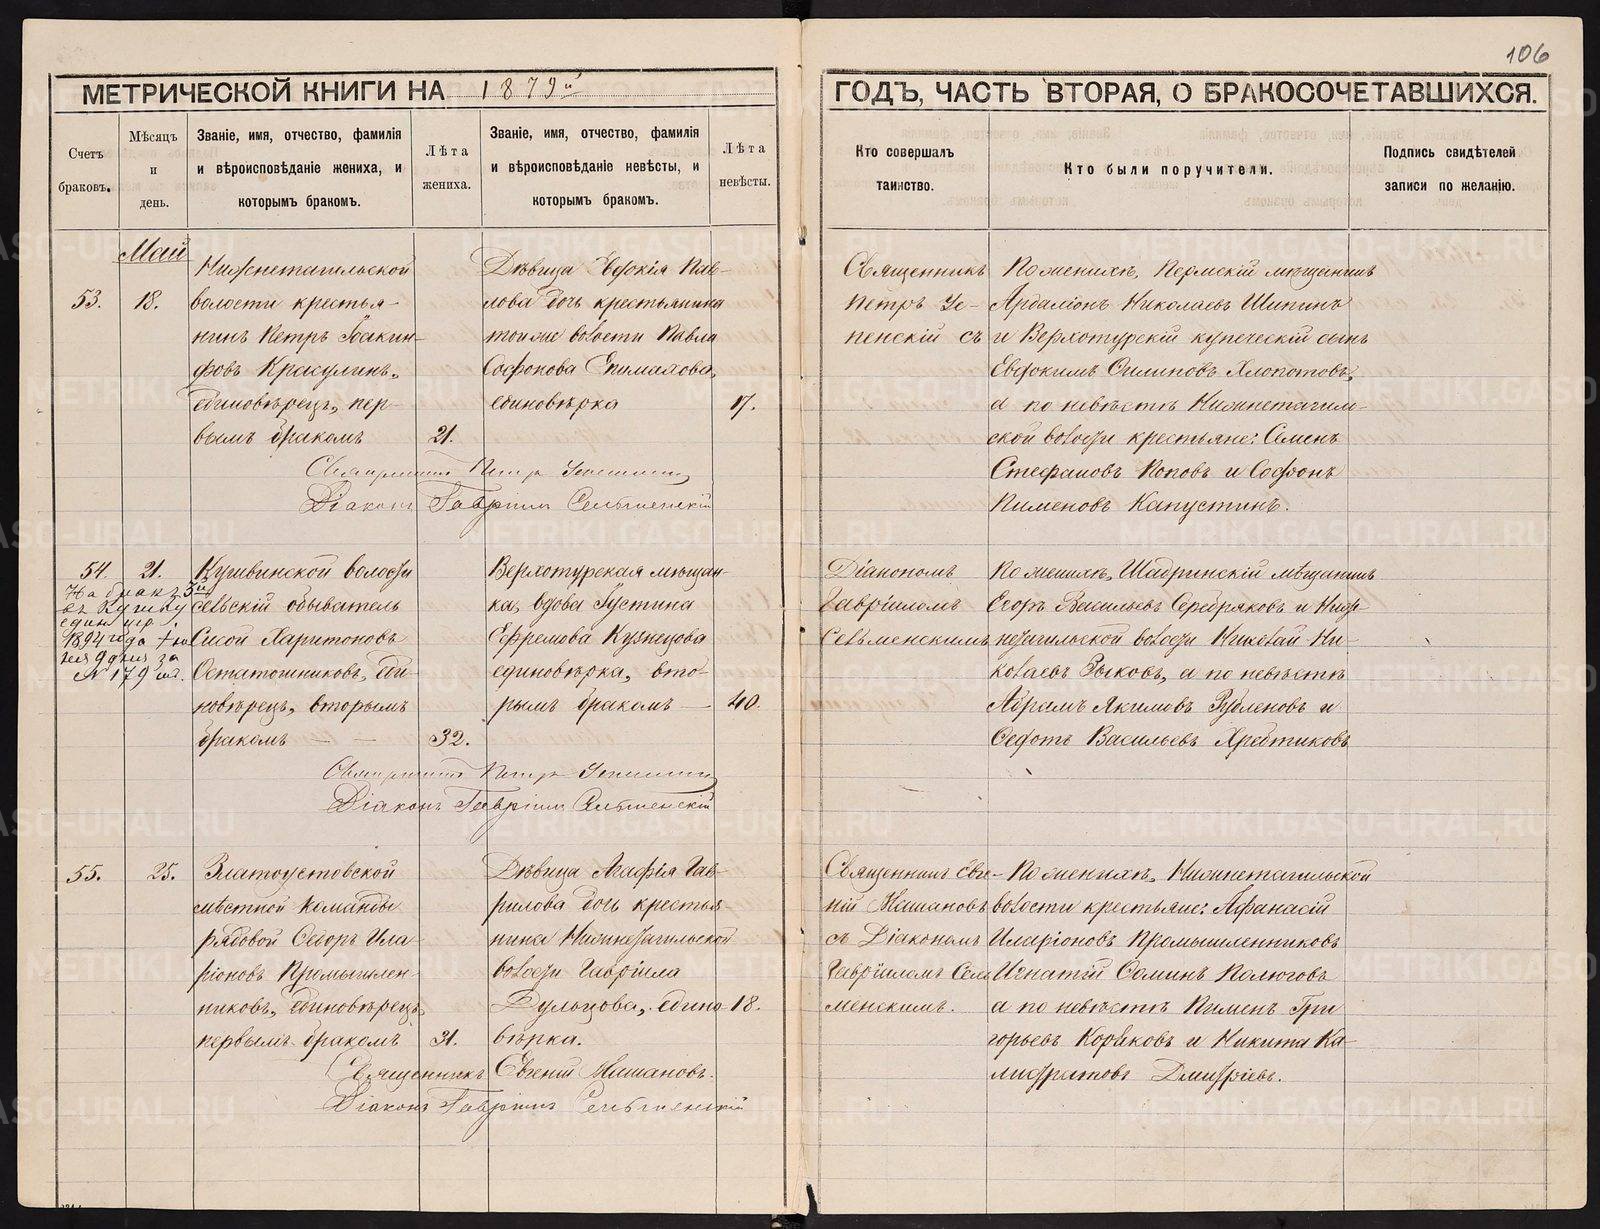 106
МЕТРИЧЕСКОЙ КНИГИ НА 1879й
ГОДЪ, ЧАСТЬ ВТОРАЯ, О БРАКОСОЧЕТАВШИХСЯ.
Счетъ
браковъ.
Мѣсяцъ
и
день.
Званіе, имя, отчество, фамилія
и вѣроисповѣданіе жениха, и
которымъ бракомъ.
Лѣта
жениха.
Званіе, имя, отчество, фамилія
и вѣроисповѣданіе невѣсты, и
которымъ бракомъ.
Лѣта
невѣсты.
Кто совершалъ
таинство.
Кто были поручители.
Подпись свидѣтелей
записи по желанію.
Май
53.
18.
Нижнетагильской
волости крестья-
нинъ Петръ Іоакин-
фовъ Красулинъ,
единовѣрецъ, пер-
вымъ бракомъ
21.
Дѣвица Евдокія Пав-
лова дочь крестьянина
тоиже волости Павла
Софонова Епимахова,
единовѣрка
17.
Священникъ
Петръ Ус-
пенскій съ
По женихѣ, Пермскій мѣщанинъ
Ардаліонъ Николаевъ Шипинъ
и Верхотурскій купеческій сынъ
Евдокимъ Филиповъ Хлопотовъ,
а по невѣстѣ Нижнетагиль-
ской волости крестьяне: Семенъ
Стефановъ Поповъ и Софонъ
Пименовъ Капустинъ.
Священникъ Петръ Успенскій
Діаконъ Гавріилъ Сельменскій
54.
21.
На бракъ 3й
единовѣр.
1894 года
за
№ 179
Кушвинской волости
сельскій обыватель
Сисой Харитоновъ
Остатошниковъ, еди-
новѣрецъ, вторымъ
бракомъ
32.
Верхотурская мѣщан-
ка, вдова Іустина
Ефремова Кузнецова
единовѣрка, вто-
рымъ бракомъ
40.
Діакономъ
Гавріиломъ
Сельменскимъ
По женихѣ, Шадринскій мѣщанинъ
Егоръ Васильевъ Серебряковъ и Ниж-
нетагильской волости Николай Ни-
колаевъ Зыковъ, а по невѣстѣ
Абрамъ Якимовъ Рубленовъ и
Федотъ Васильевъ Хребтиковъ
Священникъ Петръ Успенскій
Діаконъ Гавріилъ Сельменскій
55.
25.
Златоустовской
мѣстной команды
рядовой Ѳедоръ Ила-
ріоновъ Промышлен-
никовъ, единовѣрецъ,
первымъ бракомъ
31.
Дѣвица Агафія Гав-
рилова дочь крестья-
нина Нижнетагильской
волости Гавріила
Бульцова, едино-
вѣрка.
18.
Священникъ Евге-
ній Машановъ
съ Діакономъ
Гавріиломъ Сель
менскимъ.
По женихѣ, Нижнетагильской
волости крестьяне: Афанасій
Иларіоновъ Промышленниковъ
Игнатій Фоминъ Палюговъ
а по невѣстѣ Пименъ Гри
горьевъ Коряковъ и Никита Ка-
листратовъ Дмитріевъ.
Священникъ Евгеній Машановъ.
Діаконъ Гавріилъ Сельменскій